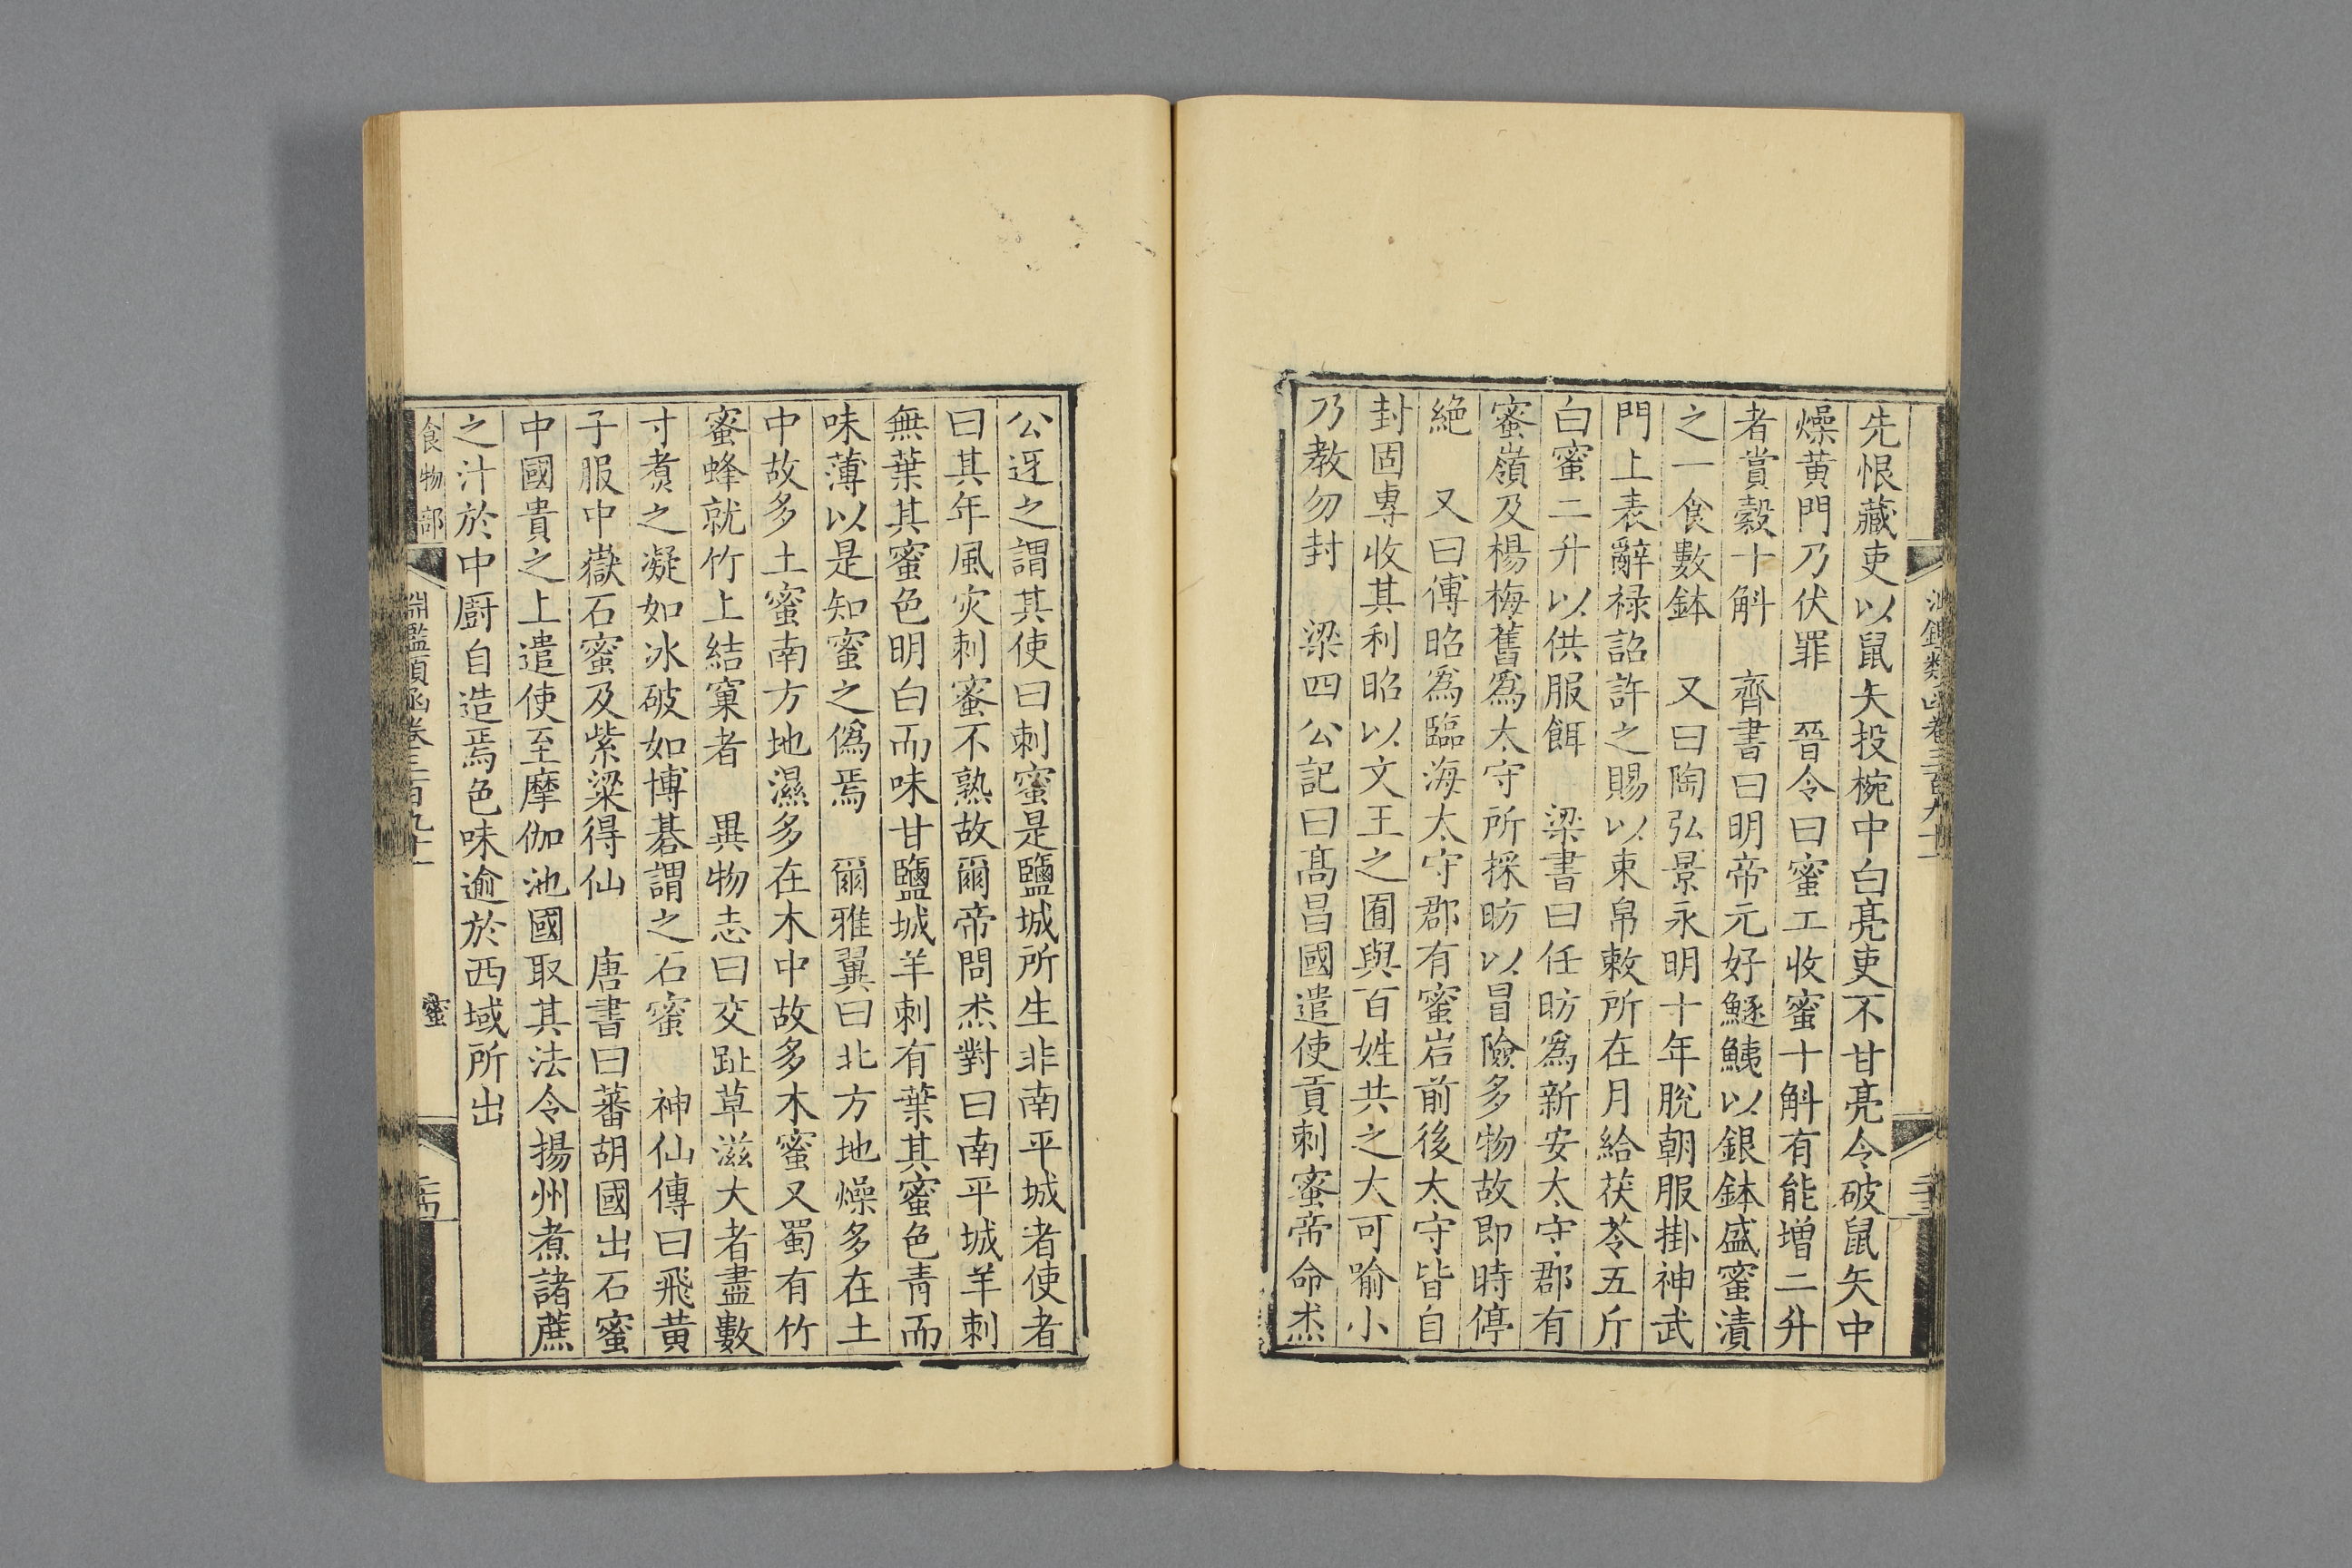 先恨藏吏以鼠矢投椀中白亮吏不甘亮令破鼠矢中
燥黃門乃伏罪　晉令曰蜜工收蜜十斛有能增二升
者賞穀十斛　齊書曰明帝元好鱁鮧以銀鉢盛蜜漬
之一食數鉢　又曰陶弘景永明十年脫朝服掛神武
門上表辭祿詔許之賜以束帛敕所在月給茯苓五斤
白蜜二升以供服餌　梁書曰任昉爲新安太守郡有
蜜嶺及楊梅舊爲太守所採昉以冒險多物故即時停
絕　又曰傅昭爲臨海太守郡有蜜岩前後太守皆自
封固專收其利昭以文王之囿與百姓共之大可喻小
乃教勿封　梁四公記曰高昌國遣使貢刺蜜帝命杰
公迓之謂其使曰刺蜜是鹽城所生非南平城者使者
曰其年風灾刺蜜不熟故爾帝問杰對曰南平城羊刺
無葉其蜜色明白而味甘鹽城羊刺有葉其蜜色青而
味薄以是知蜜之僞焉　爾雅翼曰北方地燥多在土
中故多土蜜南方地濕多在木中故多木蜜又蜀有竹
蜜蜂就竹上結窠者　異物志曰交趾草滋大者盡數
寸煮之凝如冰破如博碁謂之石蜜　神仙傳曰飛黃
子服中嶽石蜜及紫粱得仙　唐書曰蕃胡國出石蜜
中國貴之上遣使至摩伽池國取其法令揚州煮諸蔗
之汁於中厨自造焉色味逾於西域所出
食物部
淵鑑類函卷三百九十一
蜜